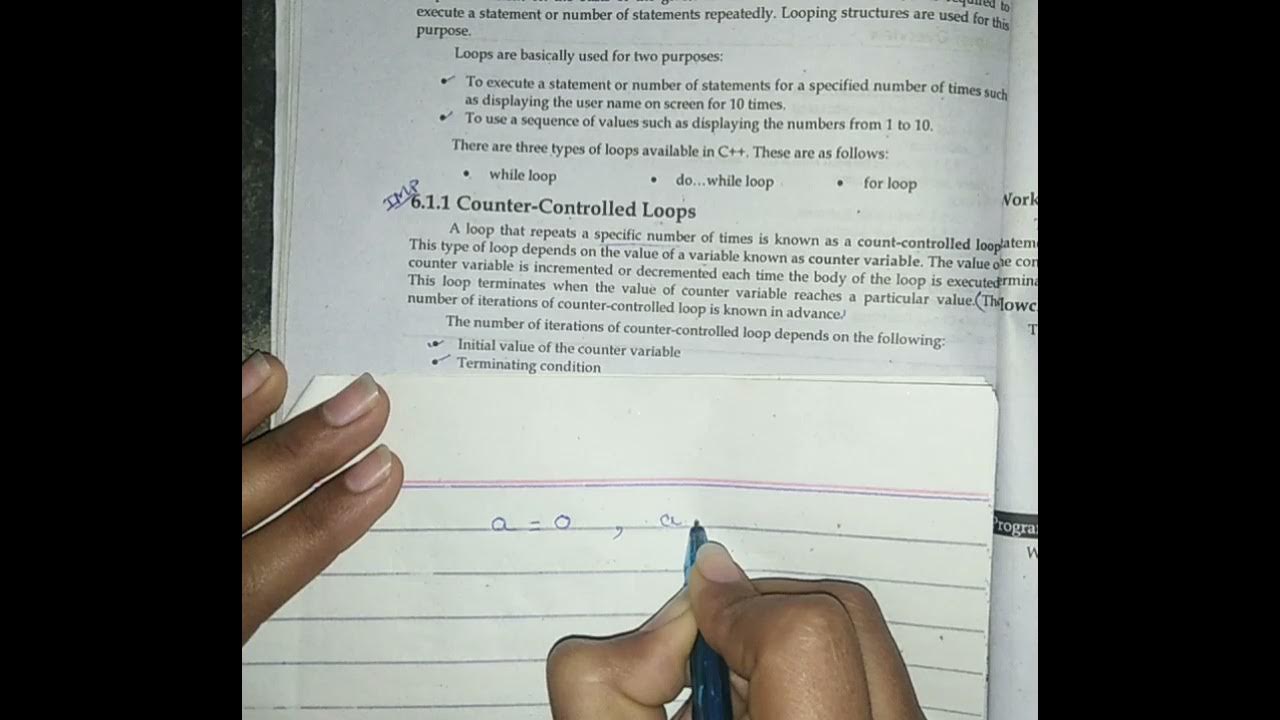 execute a statement or number of statements repeatedly. Looping structures are used for this
purpose.
Loops are basically used for two purposes:
To execute a statement or number of statements for a specified number of times such
as displaying the user name on screen for 10 times.
To use a sequence of values such as displaying the numbers from 1 to 10.
There are three types of loops available in C++. These are as follows:
• while loop • do...while loop • for loop
IMP
6.1.1 Counter-Controlled Loops
A loop that repeats a specific number of times is known as a count-controlled loop
This type of loop depends on the value of a variable known as counter variable. The value o
counter variable is incremented or decremented each time the body of the loop is executed
This loop terminates when the value of counter variable reaches a particular value. (Th
number of iterations of counter-controlled loop is known in advance.)
The number of iterations of counter-controlled loop depends on the following:
Initial value of the counter variable
Terminating condition
a = 0 ,
Work
atem
he con
rmina
lowc
T
Progra
W